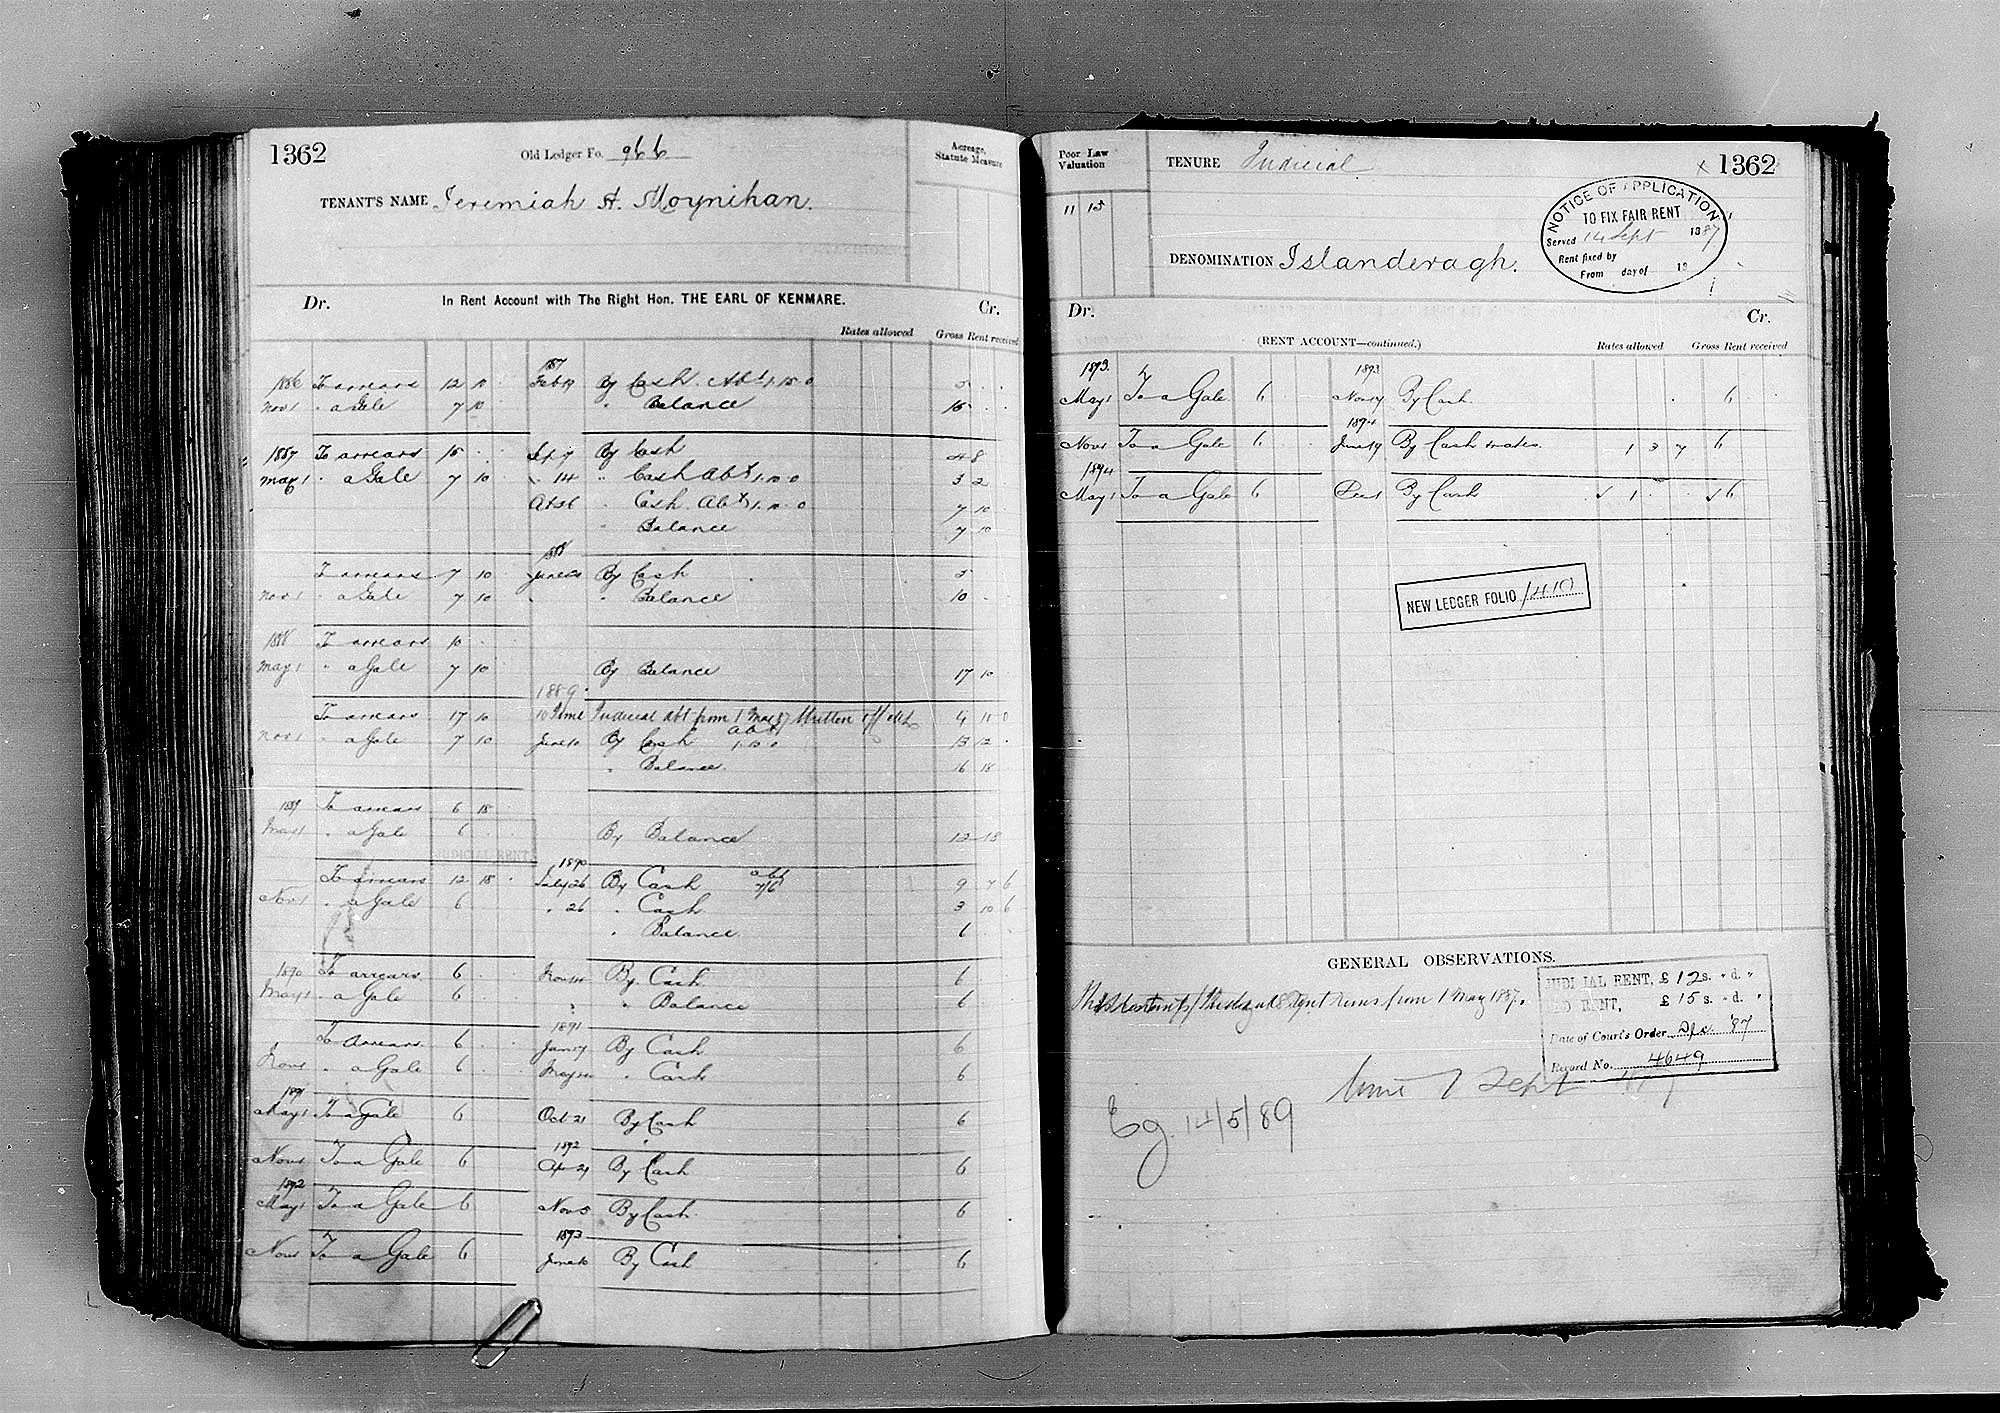 1362 Old Ledger Fo. 966 Acreage, Statute Measure
TENANT'S NAME Jeremiah A. Moynihan.
Dr. In Rent Account with The Right Hon. THE EARL OF KENMARE. Cr.
Rates allowed Gross Rent received
87
1886 To arrears 12 10 Feb 19 By Cash Abt 1.15.0 5
Nov 1 " a Gale 7 10 " Balance 15
1887 To arrears 15 Sept 7 By Cash 4 8
May 1 " a Gale 7 10 " 14 " Cash Abt 1.10.0 3 2
Oct 26 " Cash Abt 1.10.0 7 10
" Balance 7 10
1888
To arrears 7 10 June 20 By Cash 5
Nov 1 " a Gale 7 10 " " Balance 10
1888 To arrears 10
May 1 " a Gale 7 10 By Balance 17 10
1889
To arrears 17 10 10 June Judicial Abt from 1 May 87 Written off 4 11 0
Nov 1 " a Gale 7 10 June 10 By Cash Abt 1.10.0 13 12
" Balance 6 18
1889 To arrears 6 18
May 1 " a Gale 6 By Balance 12 18
1890
To arrears 12 18 July 26 By Cash abt 7/6 9 7 6
Nov 1 " a Gale 6 " 26 " Cash 3 10 6
" Balance 6
1890 To arrears 6 Nov 14 By Cash 6
May 1 " a Gale 6 " " Balance 6
1891
To Arrears 6 Jan 17 By Cash 6
Nov 1 " a Gale 6 May " Cash 6
1891
May 1 To a Gale 6 Oct 21 By Cash 6
1892
Nov 1 To a Gale 6 Apr 29 By Cash 6
1892
May 1 To a Gale 6 Nov 5 By Cash 6
1893
Nov 1 To a Gale 6 June 10 By Cash 6
Poor Law Valuation TENURE Judicial x 1362
11 15
NOTICE OF APPLICATION
TO FIX FAIR RENT
Served 14 Sept 1887
Rent fixed by
From day of 19
DENOMINATION Islanderagh.
Dr. Cr.
(RENT ACCOUNT—continued.) Rates allowed Gross Rent received
1893 1893
May 1 To a Gale 6 Nov 17 By Cash 6
1894
Nov 1 To a Gale 6 June 19 By Cash & rates 1 3 7 6
1894
May 1 To a Gale 6 Dec 1 By Cash 1 6
NEW LEDGER FOLIO 1410
GENERAL OBSERVATIONS.
JUDICIAL RENT, £12 s. " d. "
OLD RENT, £15 s. " d. "
Date of Court's Order Dec '87
Record No. 4649
Rent runs from 1 May 1887.
7 Sept
Eg. 14/5/89